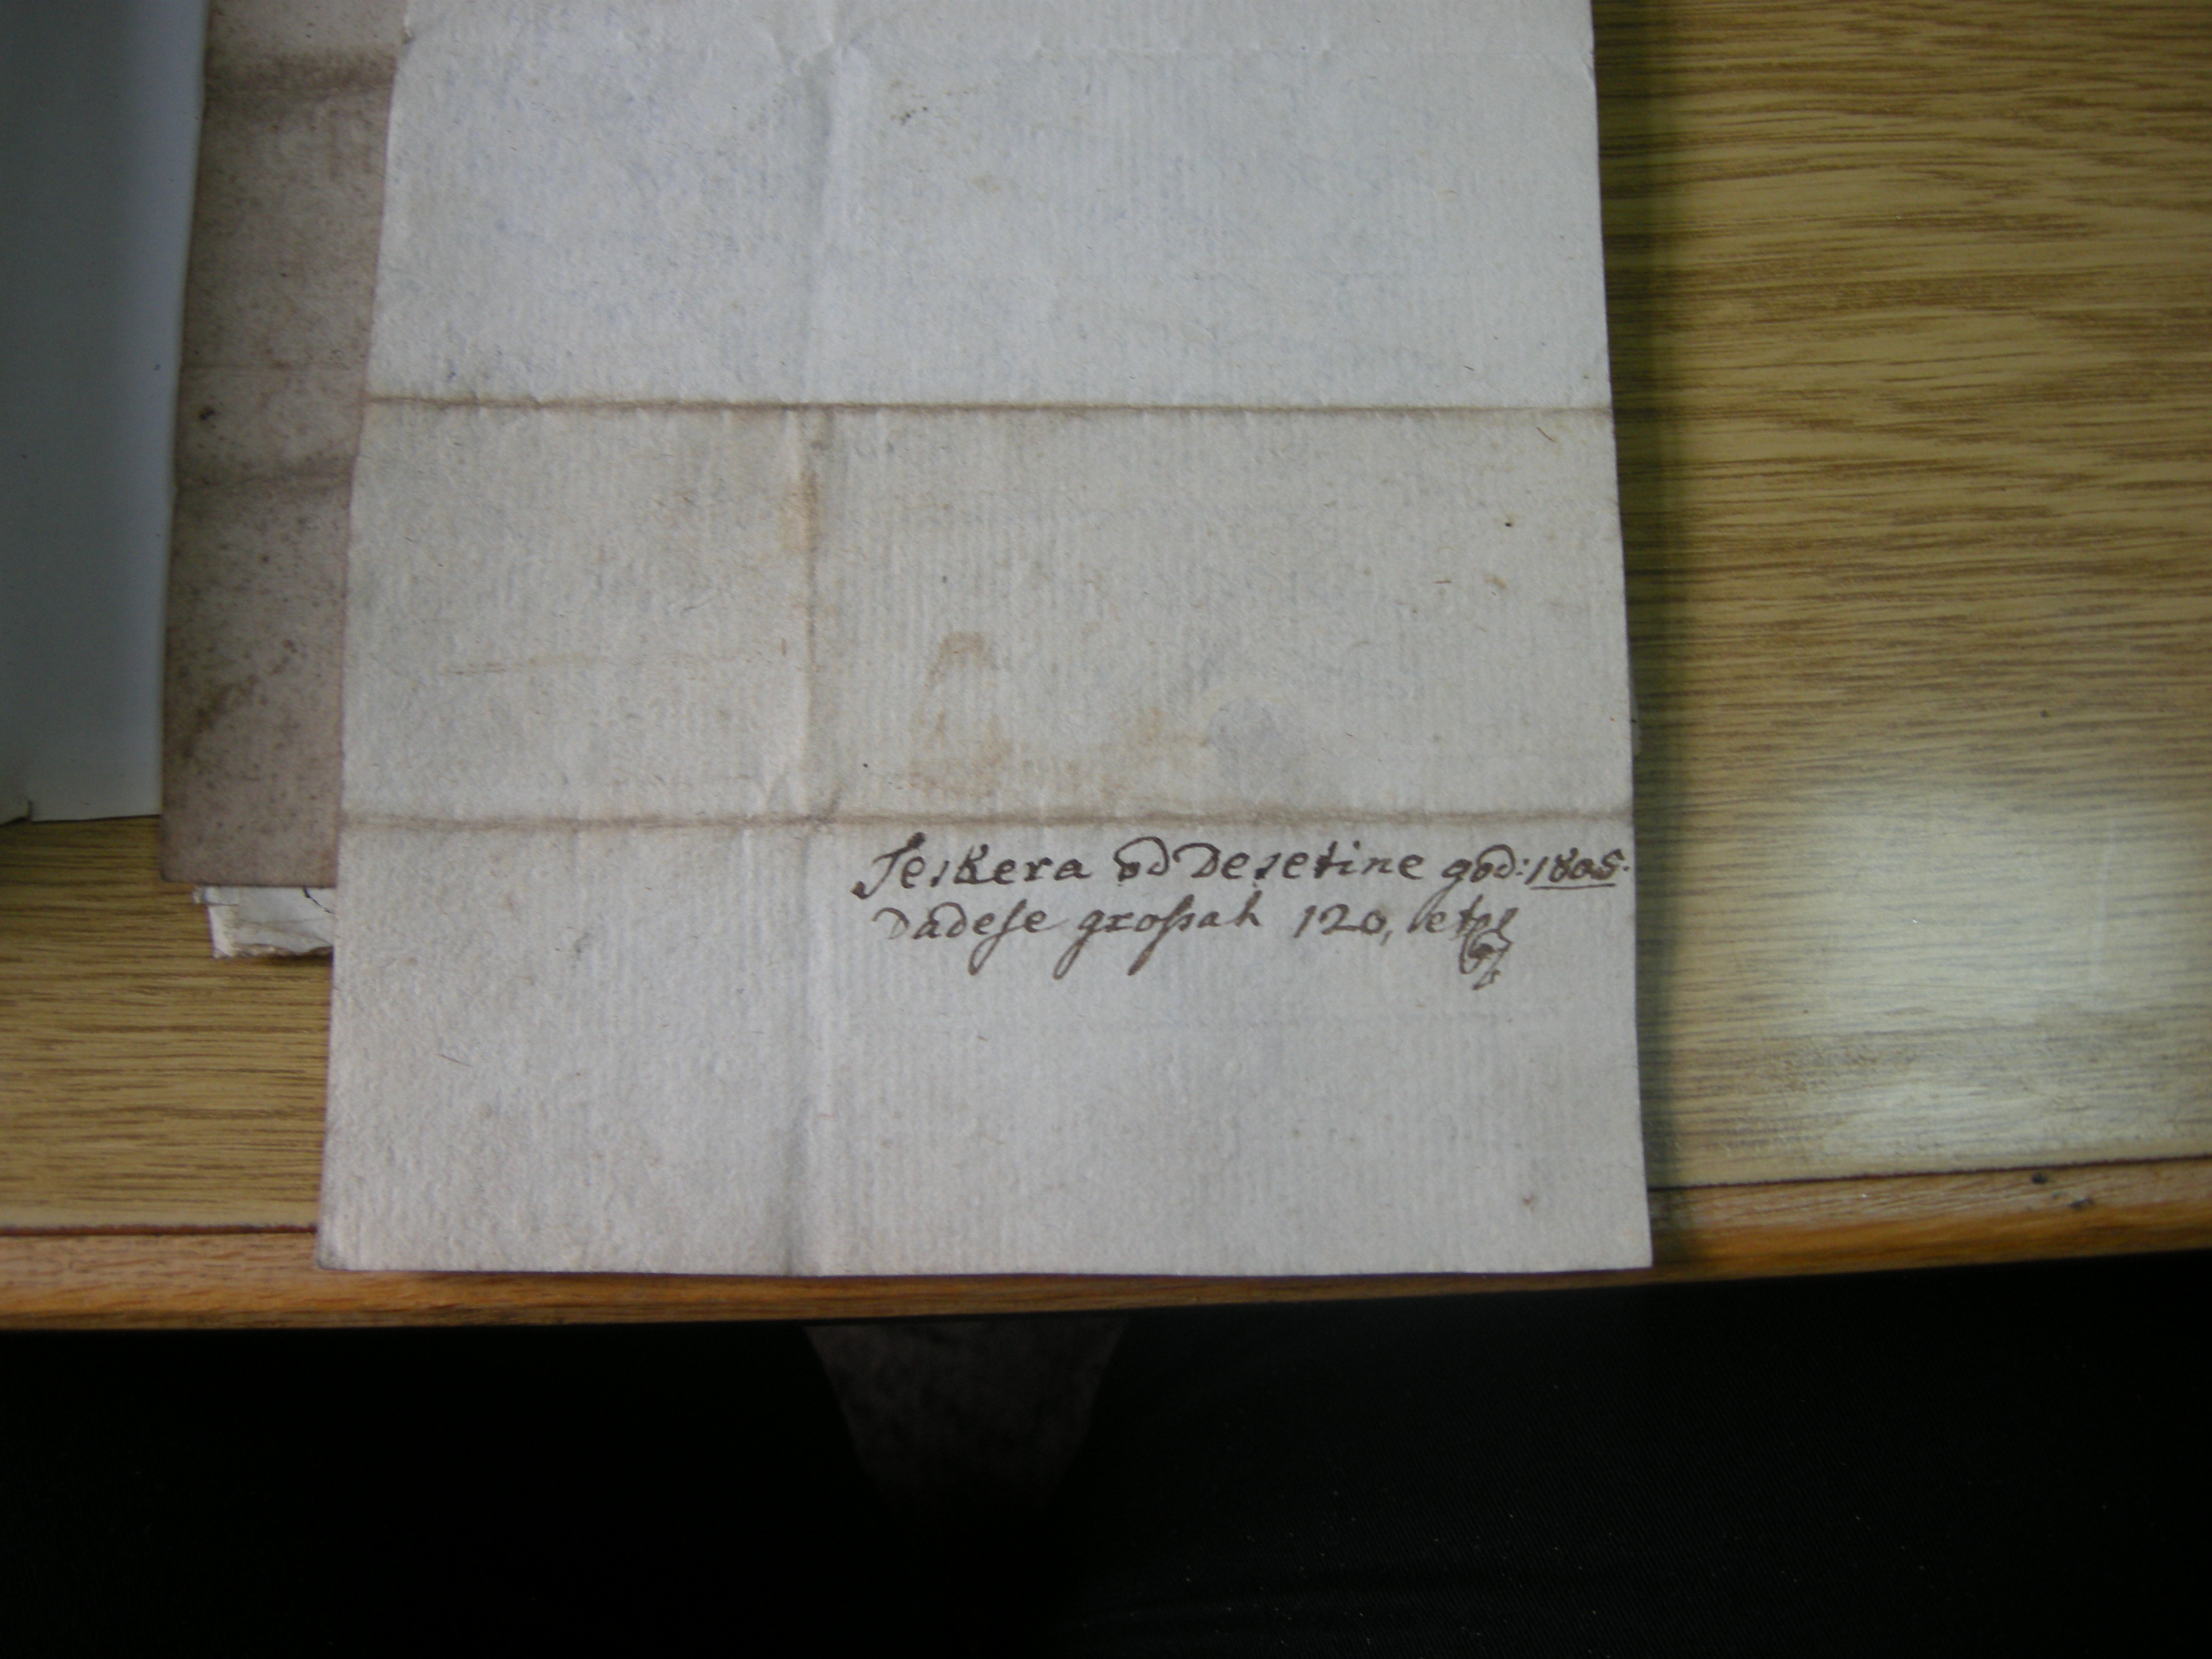 Teskera od Desetine god: 1805.
Dadese grossah 120, etc